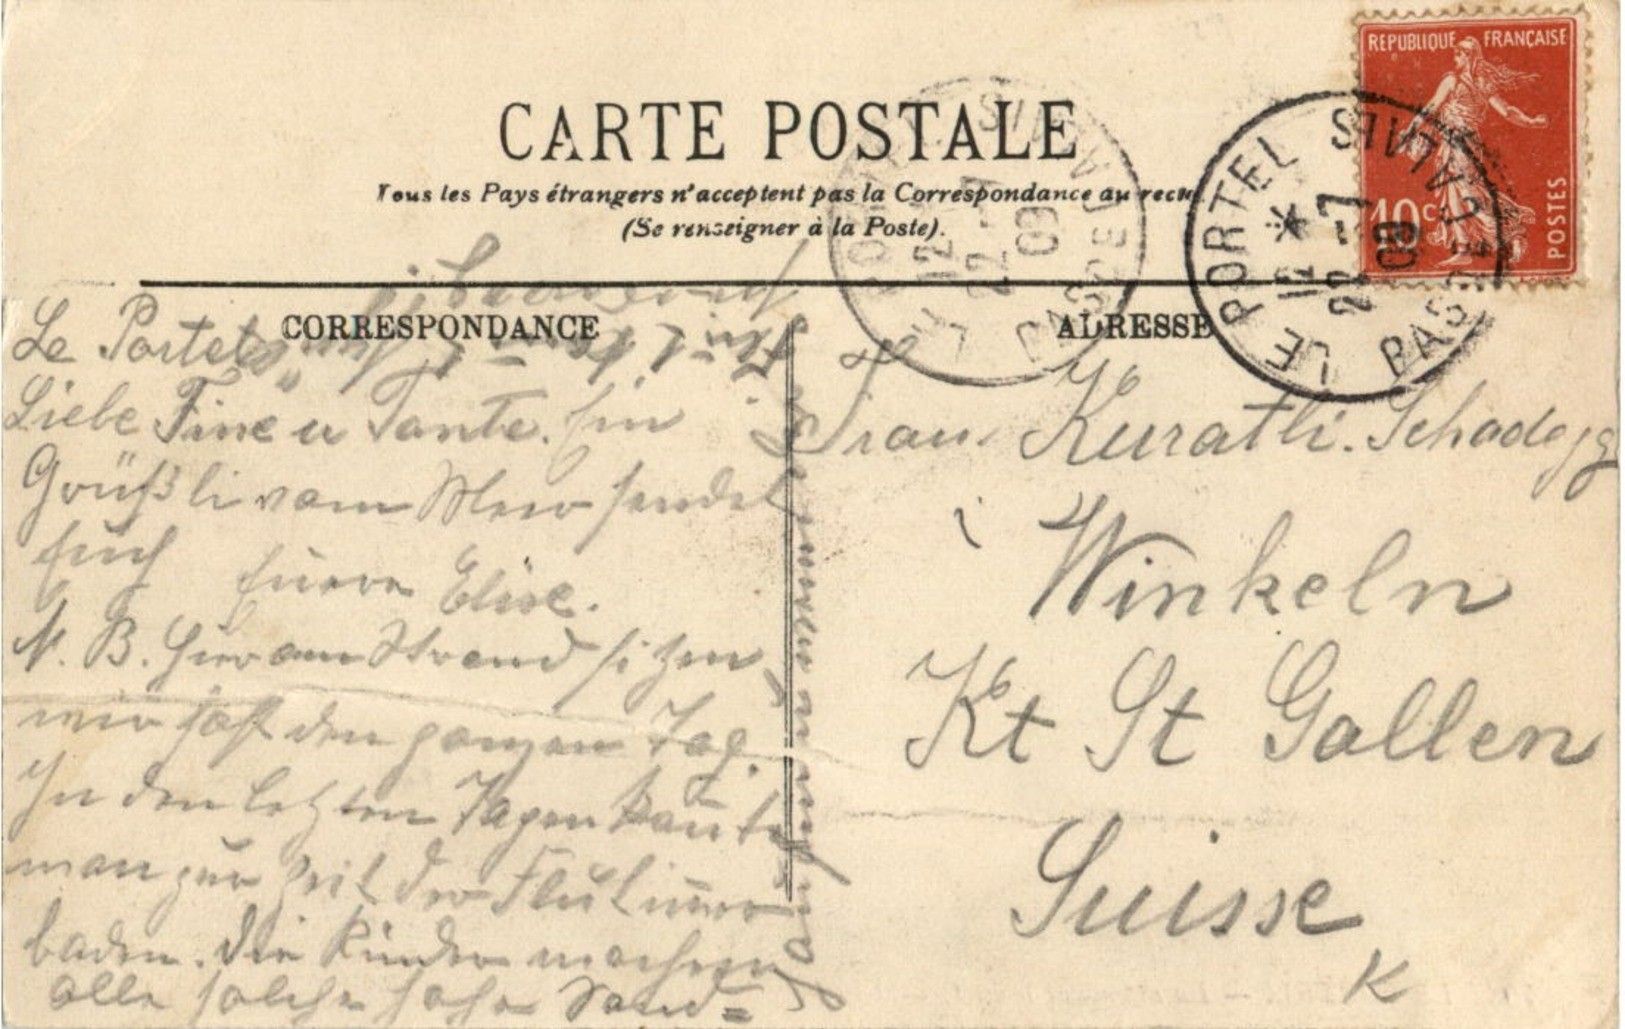 CARTE POSTALE
Tous les Pays étrangers n'acceptent pas la Correspondance au recto.
(Se renseigner à la Poste).
REPUBLIQUE FRANÇAISE
10c
POSTES
LE PORTEL
PAS DE CALAIS
12
22 -7
09
CORRESPONDANCE
ADRESSE
Le Portel
Liebe Fine u Tante. Ein
Grüßli vom Meer sendet
Euch Euere Elise.
N. B. Hier am Strand sitzen
wir fast den ganzen Tag.
In den letzten Tagen konnte
man zur Zeit der Flut immer
baden. Die Kinder machen
alle solche hohe Sand=
Frau Kuratli-Schadegg
Winkeln
Kt St Gallen
Suisse
K